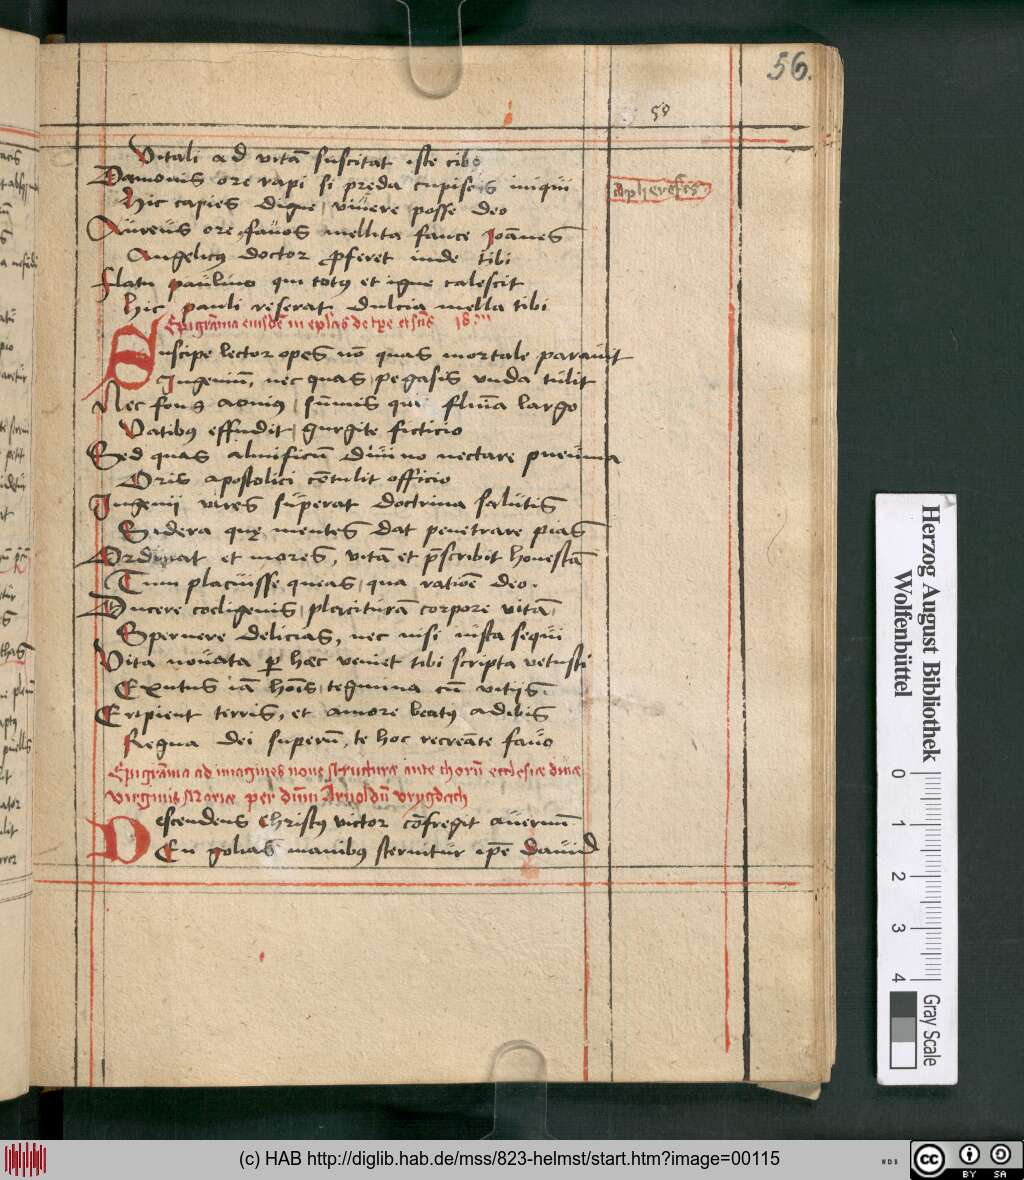 56.
50
Vitali ad vitā suscitat iste cibo
Damonis ore rapi si pręda cupiscis iniqui
apheresis
Hic capies digne, vivere posse deo
Aureus ore, favos mellita fauce Joānnes
Angelicꝰ doctor ꝓferet inde tibi
Flatu paulino qui totꝰ et igne calescit
Hic pauli reserat dulcia mella tibi
Epigrāma eiusdē in eplas
Suscipe lector opes nō quas mortale paravit
Ingeniū, nec quas pegasis unda tulit
Nec fons aonius, sūmis qui fluīa largo
Vatibus effudit, gurgite ficticio
Sed quas almificū divino nectare pneuma
Oris apostolici cōtulit officio
Ingenij vires superat doctrina salutis
Sidera quę mentes dat penetrare pias
Ordinat et mores, vitā et p̄scribit honestā
Tum placuisse queas, qua ratiōe deo.
Ducere coeligenis, placiturā corpore vitā,
Spernere delicias, nec nisi iusta sequi
Vita novata ꝑ haec veniet tibi scripta vetusti
Exutus iā hoīs tegmina cū vitijs.
Eripient terris, et amore beatꝰ adibis
Regna dei superū, te hoc recreāte favo
Epigrāma ad imagines nove structurae ante chorū ecclesiae divae
virginis Mariae per dīnu Arnoldū
Descendens Christꝰ victor cōfregit avernū
En golias manibus sternitur ipē david
Herzog August Bibliothek
Wolfenbüttel
0 1 2 3 4
Gray Scale
(c) HAB http://diglib.hab.de/mss/823-helmst/start.htm?image=00115
WDB
cc
BY SA